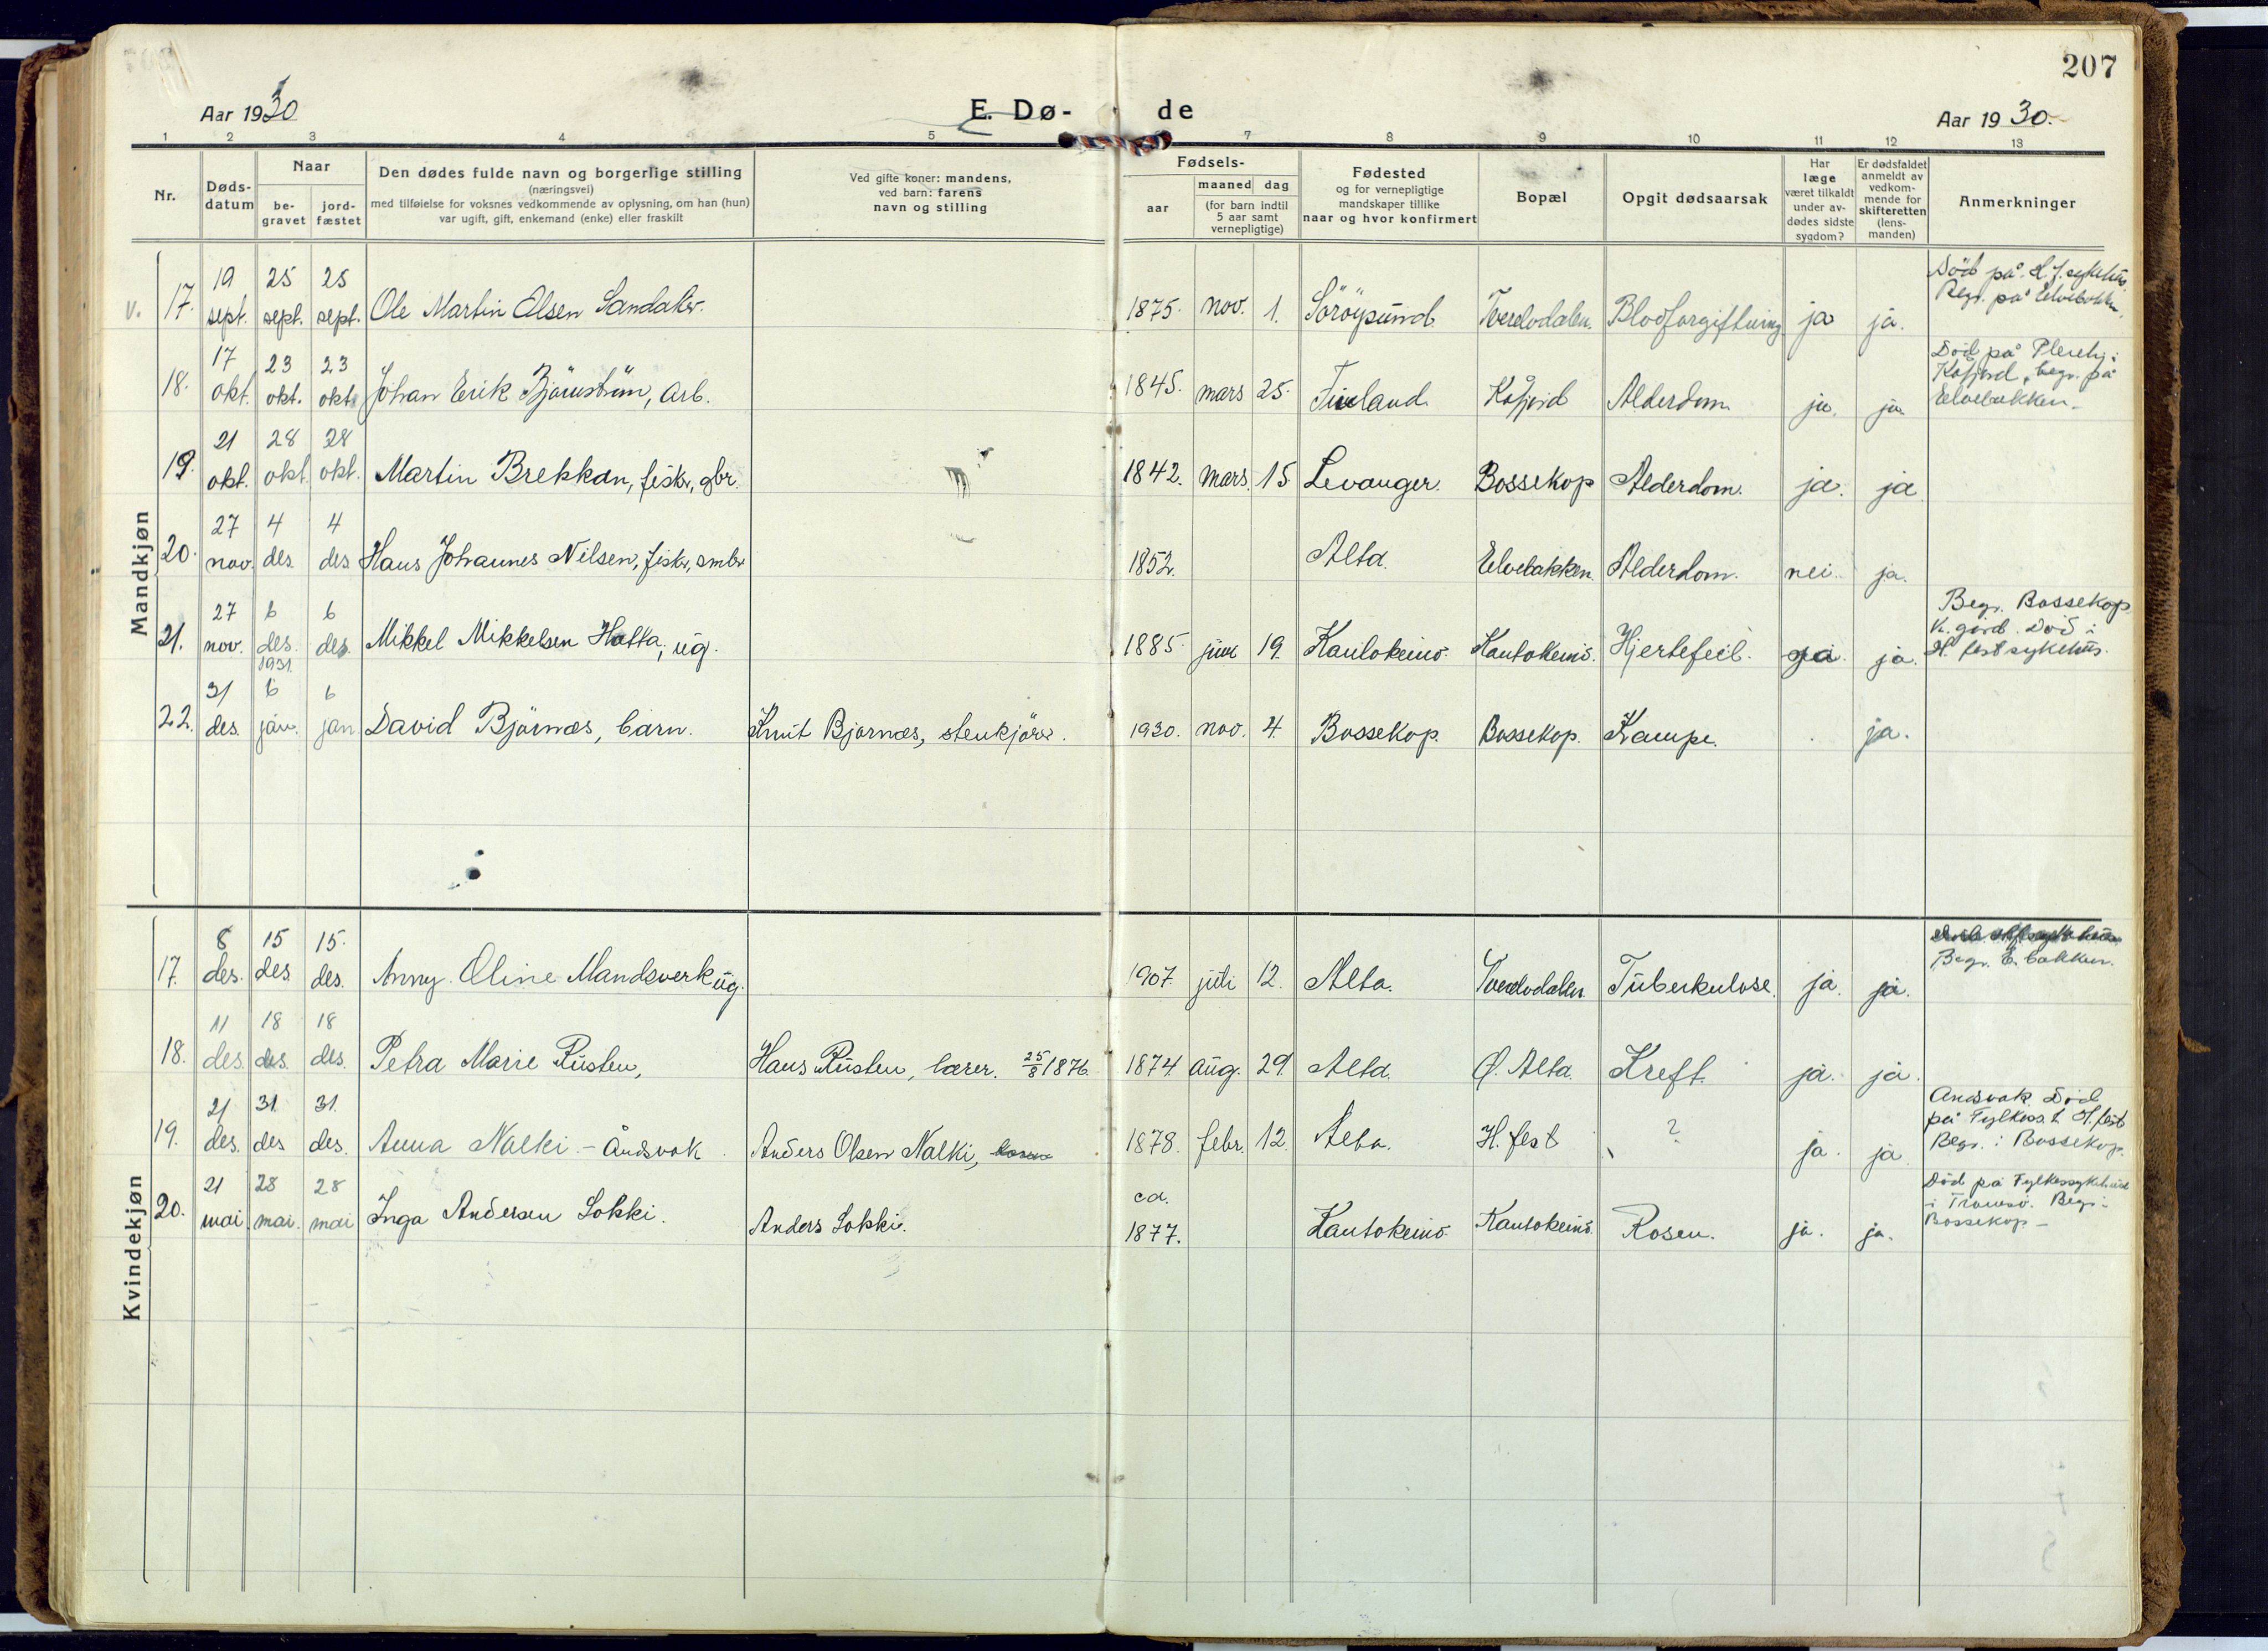 207
Aar 1930
E. Dø-
de
Aar 1930.
1 2 3 4 5 7 8 9 10 11 12 13
Nr.
Døds-
datum
Naar
be-
gravet
jord-
fæstet
Den dødes fulde navn og borgerlige stilling
(næringsvei)
med tilføielse for voksnes vedkommende av oplysning, om han (hun)
var ugift, gift, enkemand (enke) eller fraskilt
Ved gifte koner: mandens,
ved barn: farens
navn og stilling
Fødsels-
aar
maaned dag
(for barn indtil
5 aar samt
vernepligtige)
Fødested
og for vernepligtige
mandskaper tillike
naar og hvor konfirmert
Bopæl
Opgit dødsaarsak
Har
læge
været tilkaldt
under av-
dødes sidste
sygdom?
Er dødsfaldet
anmeldt av
vedkom-
mende for
skifteretten
(lens-
manden)
Anmerkninger
Mandkjøn
v. 17. 19 sept. 25 sept. 25 sept. Ole Martin Olsen Sandakr. 1875. nov. 1. Söröysund. Tverelvdalen. Blodforgiftning ja ja. Död på H.f. sykehus.
Begr. på Elvebakken.
18. 17 okt. 23 okt. 23 okt. Johan Erik Björnström, arb. 1845. mars 25. Finland. Kåfjord Alderdom. ja. ja. Död på Pleiehj. i
Kåfjord, begr. på
Elvebakken.
19. 21 okt. 28 okt. 28 okt. Martin Brekkan, fisk., gbr. 1842. mars. 15. Levanger. Bossekop Alderdom. ja. ja
20. 27 nov. 4 des. 4 des. Hans Johannes Nilsen, fisk., smbr 1852. Alta. Elvebakken. Alderdom. nei. ja.
21. 27 nov. 6 des. 6 des. Mikkel Mikkelsen Hatta, ug. 1885. juni 19. Kautokeino. Kautokeino. Hjertefeil. ja. ja. Begr. Bossekop
k. gård. Död i
H. fest sykehus.
22. 31 des. 1931 6 jan. 6 jan. David Björnæs, barn. Knut Bjørnæs, stenkjörer. 1930. nov. 4. Bossekop. Bossekop. Krampe. ja.
Kvindekjøn
17. 8 des. 15 des. 15. des. Anny Oline Mandsverk ug. 1907. juli 12. Alta. Tverelvdalen. Tuberkulose. ja. ja. Begr. E. bakken.
18. 11 des. 18 des. 18 des. Petra Marie Rusten, Hans Rusten, lærer. 25/8 1876. 1874. aug. 29. Alta. Ø. Alta. Kreft. ja. ja.
19. 21 des. 31 des 31. des. Anna Nalki - Åndsvak. Anders Olsen Nalki, 1878. febr. 12 Alta. H. fest ? ja. ja Andsvak Död
på Fylkess. i H. fest
Begr. i Bossekop.
20. 21 mai. 28 mai. 28 mai Inga Andersen Lokki. Anders Lokki. ca. 1877. Kautokeino. Kautokeino. Rosen. ja. ja. Död på Fylkessykehuset
i Tromsö. Begr. i
Bossekop -